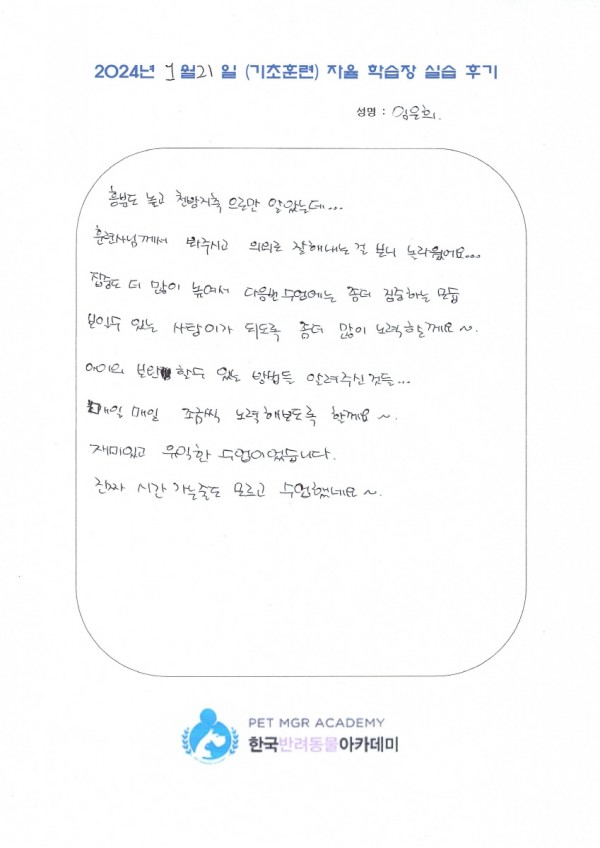 2024년 1월 21일 (기초훈련) 자율 학습장 실습 후기
성명 : 임은희.
흥분도 높고 천방지축 으로만 알았는데...
훈련사님께서 봐주시고 의외로 잘해내는 걸 보니 놀라웠어요...
집중도 더 많이 높여서 다음번 수업에는 좀더 집중하는 모습
보일수 있는 사탕이가 되도록 좀더 많이 노력할께요~.
아이의 보완 할수 있는 방법들 알려주신것들...
매일 매일 조금씩 노력해보도록 할께요~.
재미있고 유익한 수업이었습니다.
진짜 시간 가는줄도 모르고 수업했네요~.
PET MGR ACADEMY
한국반려동물아카데미